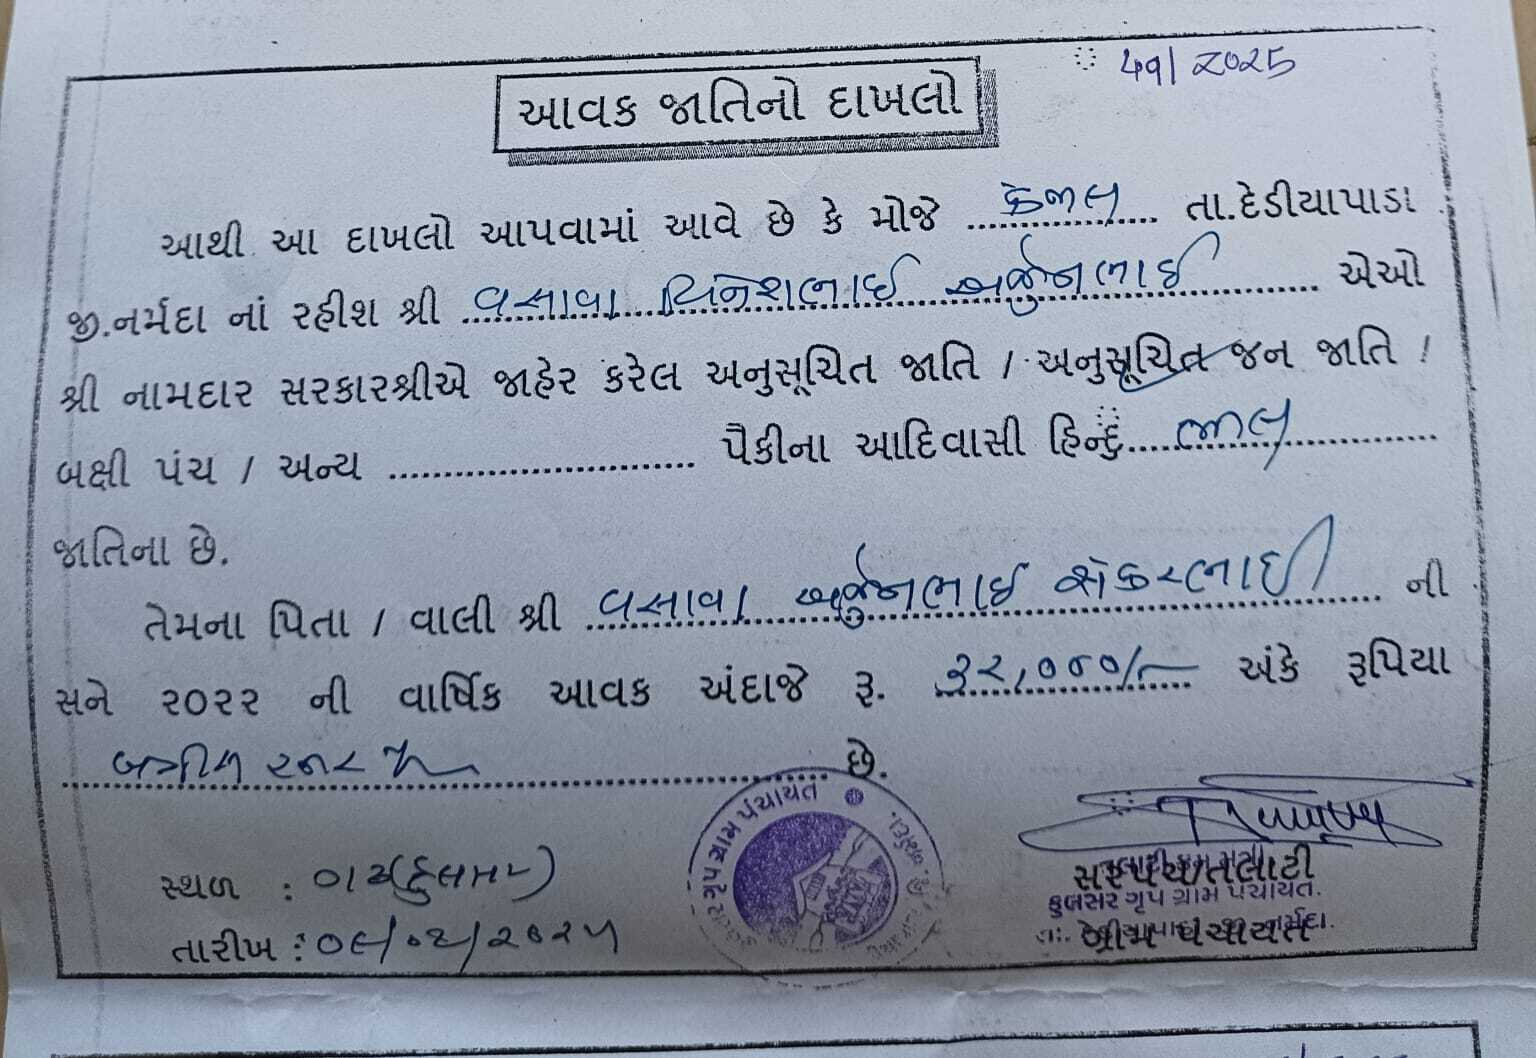 49/2025
આવક જાતિનો દાખલો
આથી આ દાખલો આપવામાં આવે છે કે મોજે ................ તા.દેડીયાપાડા
જી.નર્મદા નાં રહીશ શ્રી વસાવા દિનેશભાઈ અર્જુનભાઈ એઓ
શ્રી નામદાર સરકારશ્રીએ જાહેર કરેલ અનુસૂચિત જાતિ / અનુસૂચિત જન જાતિ /
બક્ષી પંચ / અન્ય ........................ પૈકીના આદિવાસી હિન્દું ભીલ
જાતિના છે.
તેમના પિતા / વાલી શ્રી વસાવા અર્જુનભાઈ શંકરભાઈ ની
સને ૨૦૨૨ ની વાર્ષિક આવક અંદાજે રૂ. ૩૨,૦૦૦/- અંકે રૂપિયા
બત્રીસ હજાર પુરા છે.
ગૃપ ગ્રામ પંચાયત
સ્થળ :
સરપંચ/તલાટી
કુલસર ગૃપ ગ્રામ પંચાયત.
તારીખ : ૦૯/૦૨/૨૦૨૫
ગ્રામ પંચાયત